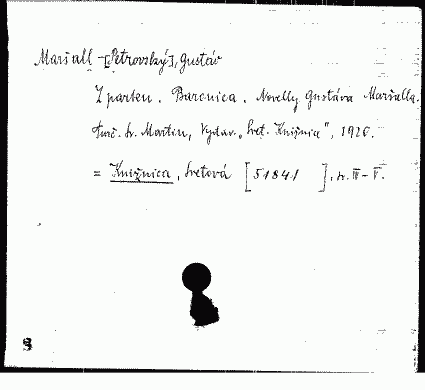 Maršall-[Petrovský], Gustáv
Z parten. Barcnica. Novelly Gustáva Maršalla.
Turč. Sv. Martin, Vydav. „Svet. Knižnica", 1920.
= Knižnica, Svetová [51841 ], sv. III-V.
8